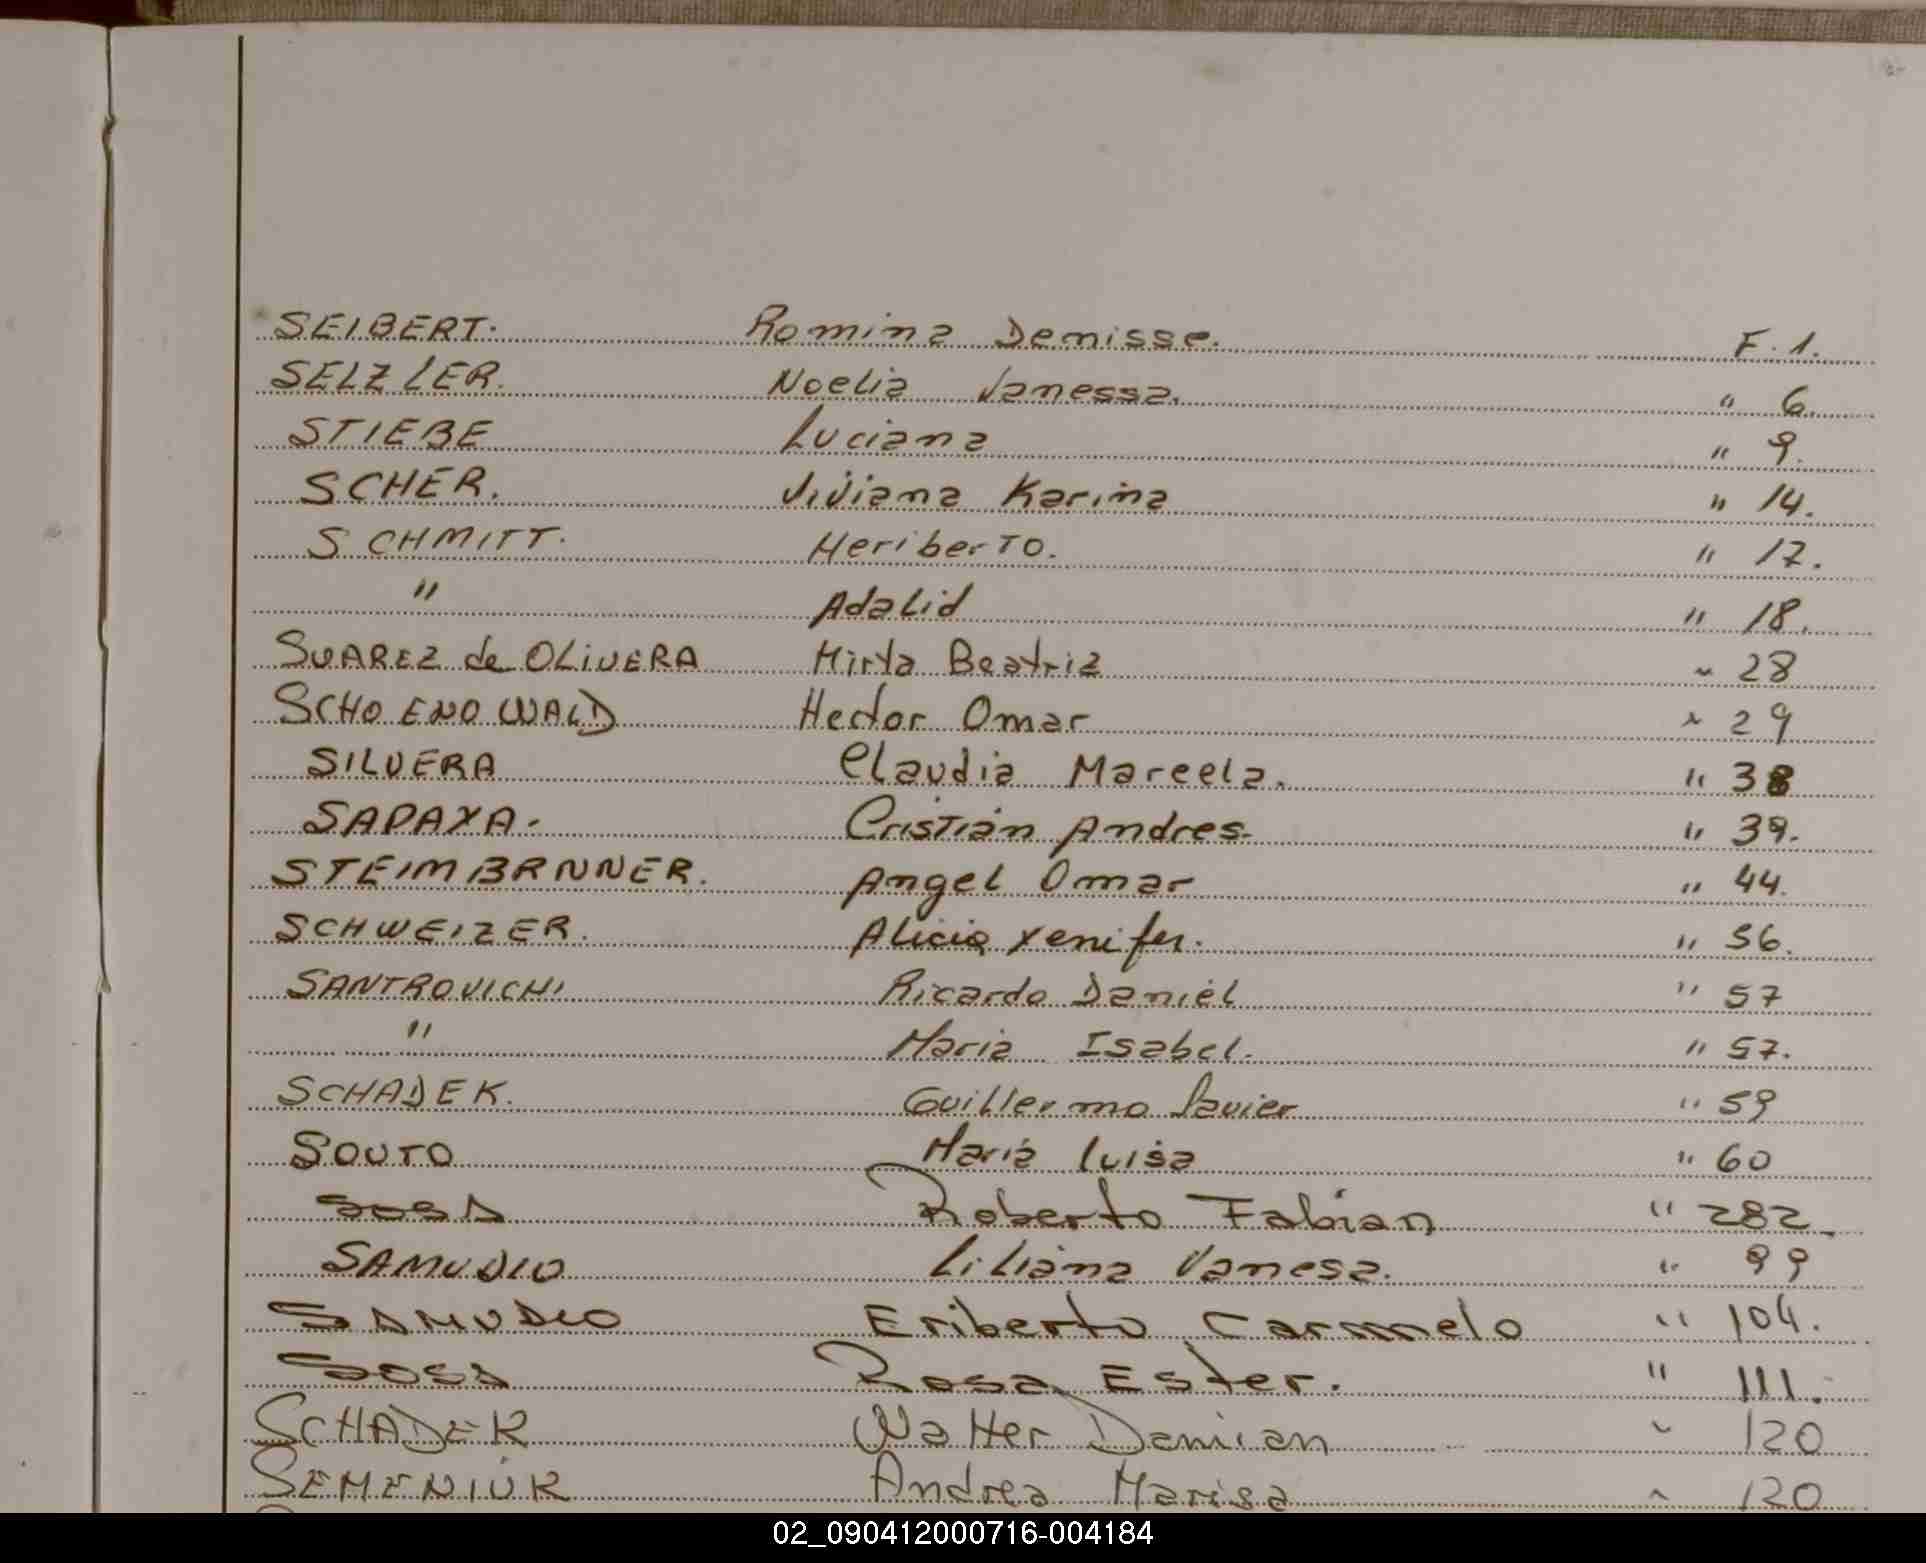 SEIBERT. Romina Denisse. F. 1.
SELZLER. Noelia Vanessa. " 6.
STIEBE Luciana " 9.
SCHER. Viviana Karina " 14.
SCHMITT. Heriberto. " 17.
" Adalid " 18.
SUAREZ de OLIVERA Mirta Beatriz " 28
SCHOENOWALD Hector Omar " 29
SILVERA Claudia Marcela. " 38
SAPAYA. Cristian Andres. " 39.
STEIMBRNNER. Angel Omar " 44.
SCHWEIZER. Alicia Yenifer. " 56.
SANTROVICHI Ricardo Daniel " 57
" Maria Isabel. " 57.
SCHADEK. Guillermo Javier " 59
SOUTO Maria Luisa " 60
SOSA Roberto Fabian " 282
SAMUDIO Liliana Vanesa. " 99
SAMUDIO Eriberto Carmelo " 104.
SOSA Rosa Ester. " 111.
SCHADEK Walter Damian " 120
SEMENIUK Andrea Marisa " 120
02_090412000716-004184